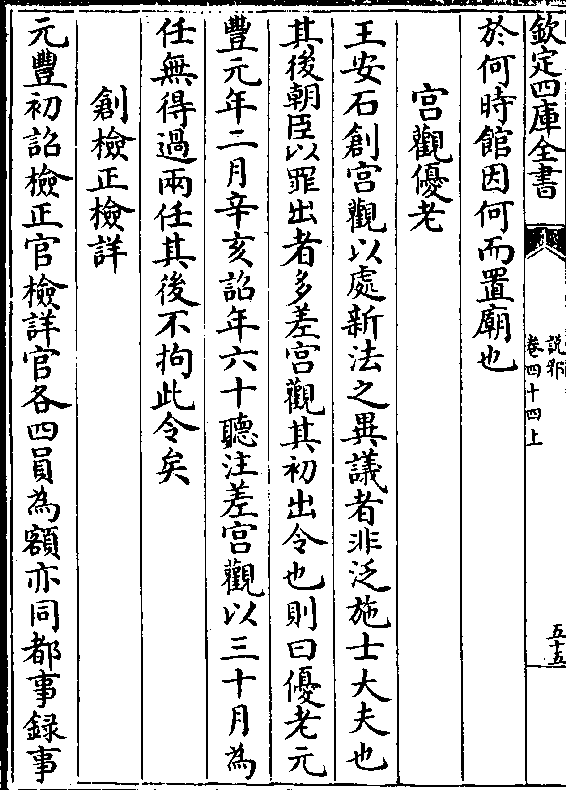 欽定四庫全書
說郛
卷四十四上
五十五
於何時館因何而置廟也
宫觀優老
王安石創宫觀以處新法之異議者非泛施士大夫也
其後朝臣以罪出者多差宫觀其初出令也則曰優老元
豐元年二月辛亥詔年六十聽注差宫觀以三十月為
任無得過兩任其後不拘此令矣
創檢正檢詳
元豐初詔檢正官檢詳官各四員為額亦同都事録事